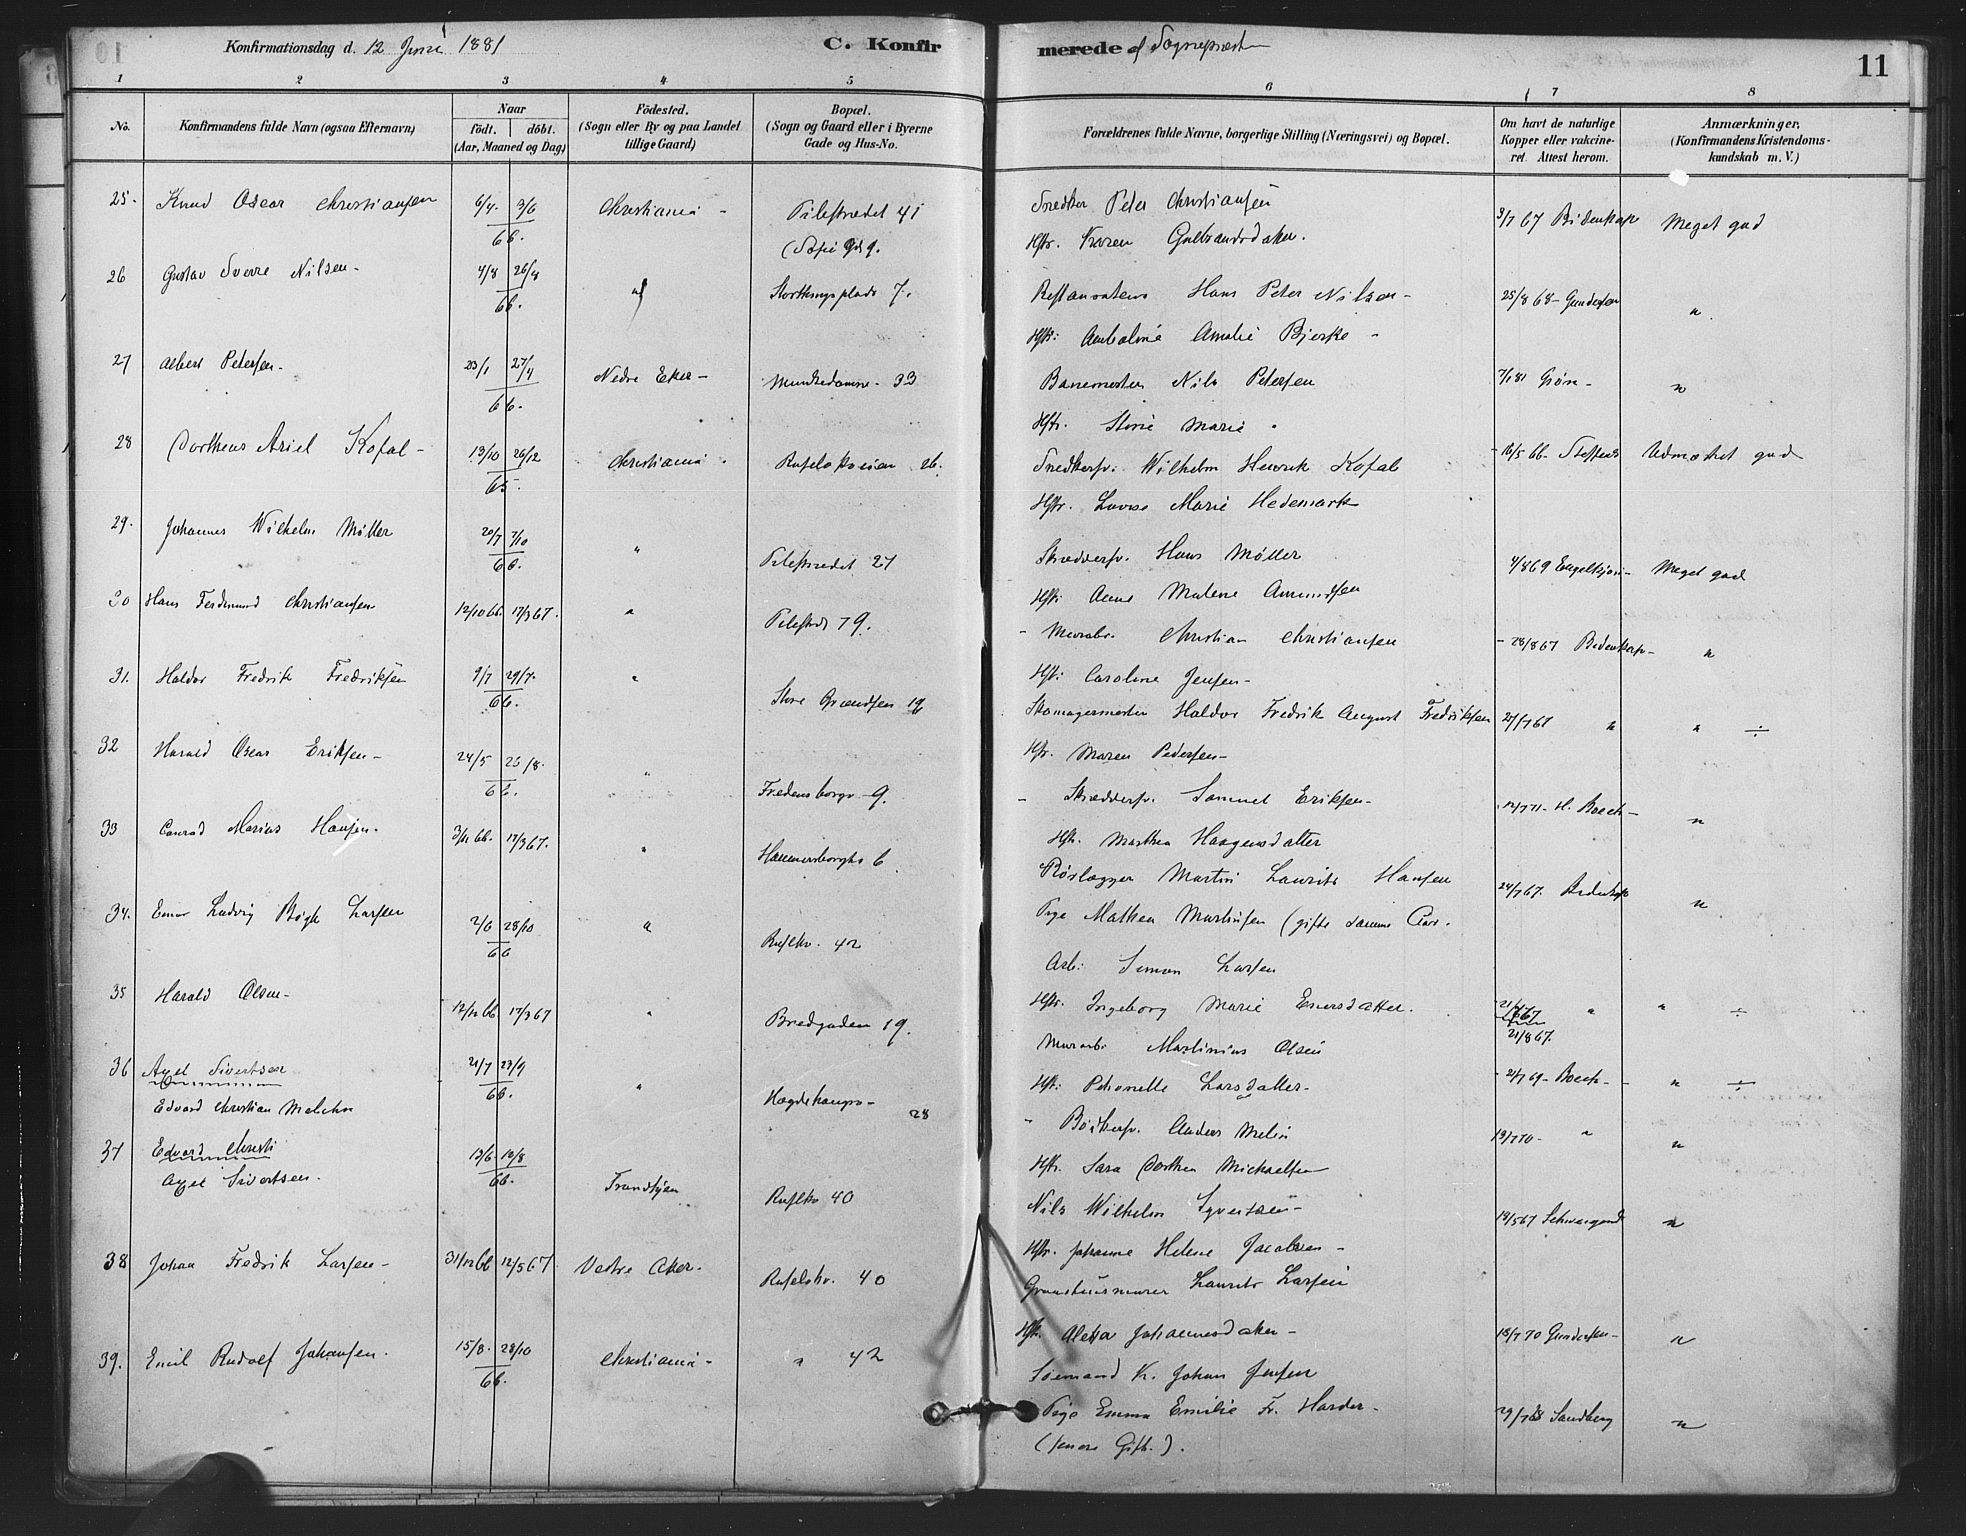 Konfirmationsdag d. 12 Juni 1881 C. Konfirmerede af Sognepræst 11
1 2 3 4 5 6 7 8
No. Konfirmandens fulde Navn (ogsaa Efternavn) Naar födt. döbt. (Aar, Maaned og Dag) Födested. (Sogn eller By og paa Landet tillige Gaard) Bopæl. (Sogn og Gaard eller i Byerne Gade og Hus-No. Forældrenes fulde Navne, borgerlige Stilling (Næringsvei) og Bopæl. Om havt de naturlige Kopper eller vakcineret. Attest herom. Anmærkninger, (Konfirmandens Kristendomskundskab m. V.)
25. Knud Oscar Christiansen 6/4 3/6 66. Christiania Pilestrædet 41 Snedker Peter Christiansen 67 Bidenkap Meget god
(Sofie Gd 9. Hstr. Karen Gulbrandsdater.
26 Gustav Sverre Nilsen 4/8 26/8 66. Storthingsplads 7. Restauratør Hans Peter Nilsen 25/8 68 Gundersen "
Hstr: Amalie Bjerke
27 Albert Petersen 23/1 27/4 66. Nedre Eker Munkedamsv. 33 Banemester Nils Petersen Grøn "
Hstr. Marie
28 Dortheus Ariel Kofal 13/10 26/12 65. Christiania Snedkersv. Wilhelm Henrik Kofal 16/5 66 Steffens Udmærket god
Hstr. Lovise Marie Hedemark
29. Johannes Wilhelm Møller 20/7 7/10 66. " Pilestrædet 27 Skræddersv. Hans Møller 4/8 69 Meget god
Hstr: Anne Malene Amundsen
30 Hans Ferdinand Christiansen 12/10 66. 17/3 67. " Pilestræd 79. Murarb. Christian Christiansen 28/8 67 Bidenkap "
Hstr: Caroline Jensen
31. Haldor Fredrik Fredriksen 9/7 29/7 66. " Store Grændsen 19 Skomagermester Haldor Fredrik August Fredriksen 27/7 67 " " ÷
Hstr. Maren Pedersen
32 Harald Oscar Eriksen 24/5 26/8. 66. " Fredensborgv 9. Skræddersv. Samuel Eriksen H. Boeck "
Hstr. Marthea Haagensdatter
33 Conrad Marius Hansen. 66. 17/3 67. " Hammersborgts 6 Rørlægger Martin Laurits Hansen 24/7 67. Bidenkap "
Pige Mathea Martinsen (gifte samme Aar.
34. Einar Ludvig Bøgh Larsen 2/6 28/10 66 " Rusløkv. 42
Arb: Simon Larsen
Hstr. Ingeborg Marie Einersdatter. 67 " " ÷
21/8 67.
35 Harald Olsen 12/12 66 17/3 67 " Bredgaden 19. Murarb. Martinius Olsen
Hstr: Petronelle Larsdatter 69 Boeck " ÷
36 Axel Sivertsen 21/7 23/9 66. " Hægdehaugsv 28
Edvard Christian Melchn
Bødkersv. Anders Melin 70 " "
Hstr. Sara Dorthea Michaelsen
37 Edvard Christi 13/6 19/8 66. Trondhjem Rusløkv 40
Axel Sivertsen.
Nils Wilhelm Syvertsen 19/5 67 Schweigaard "
Hstr. Johanne Helene Jacobsen
38 Johan Fredrik Larsen 31/12 66 12/5 67 Vestre Aker. Rusløkv. 40 Graastensmurer Laurits Larsen
Hstr. Johannesdater 18/7 70 Gundersen "
39. Emil Rudolf Johansen. 15/8 28/10 66. Christiania " 42 Sømand K. Johan Jensen
Pige Emma Emilie Fr. Harder Sandberg "
(senere Gift.).